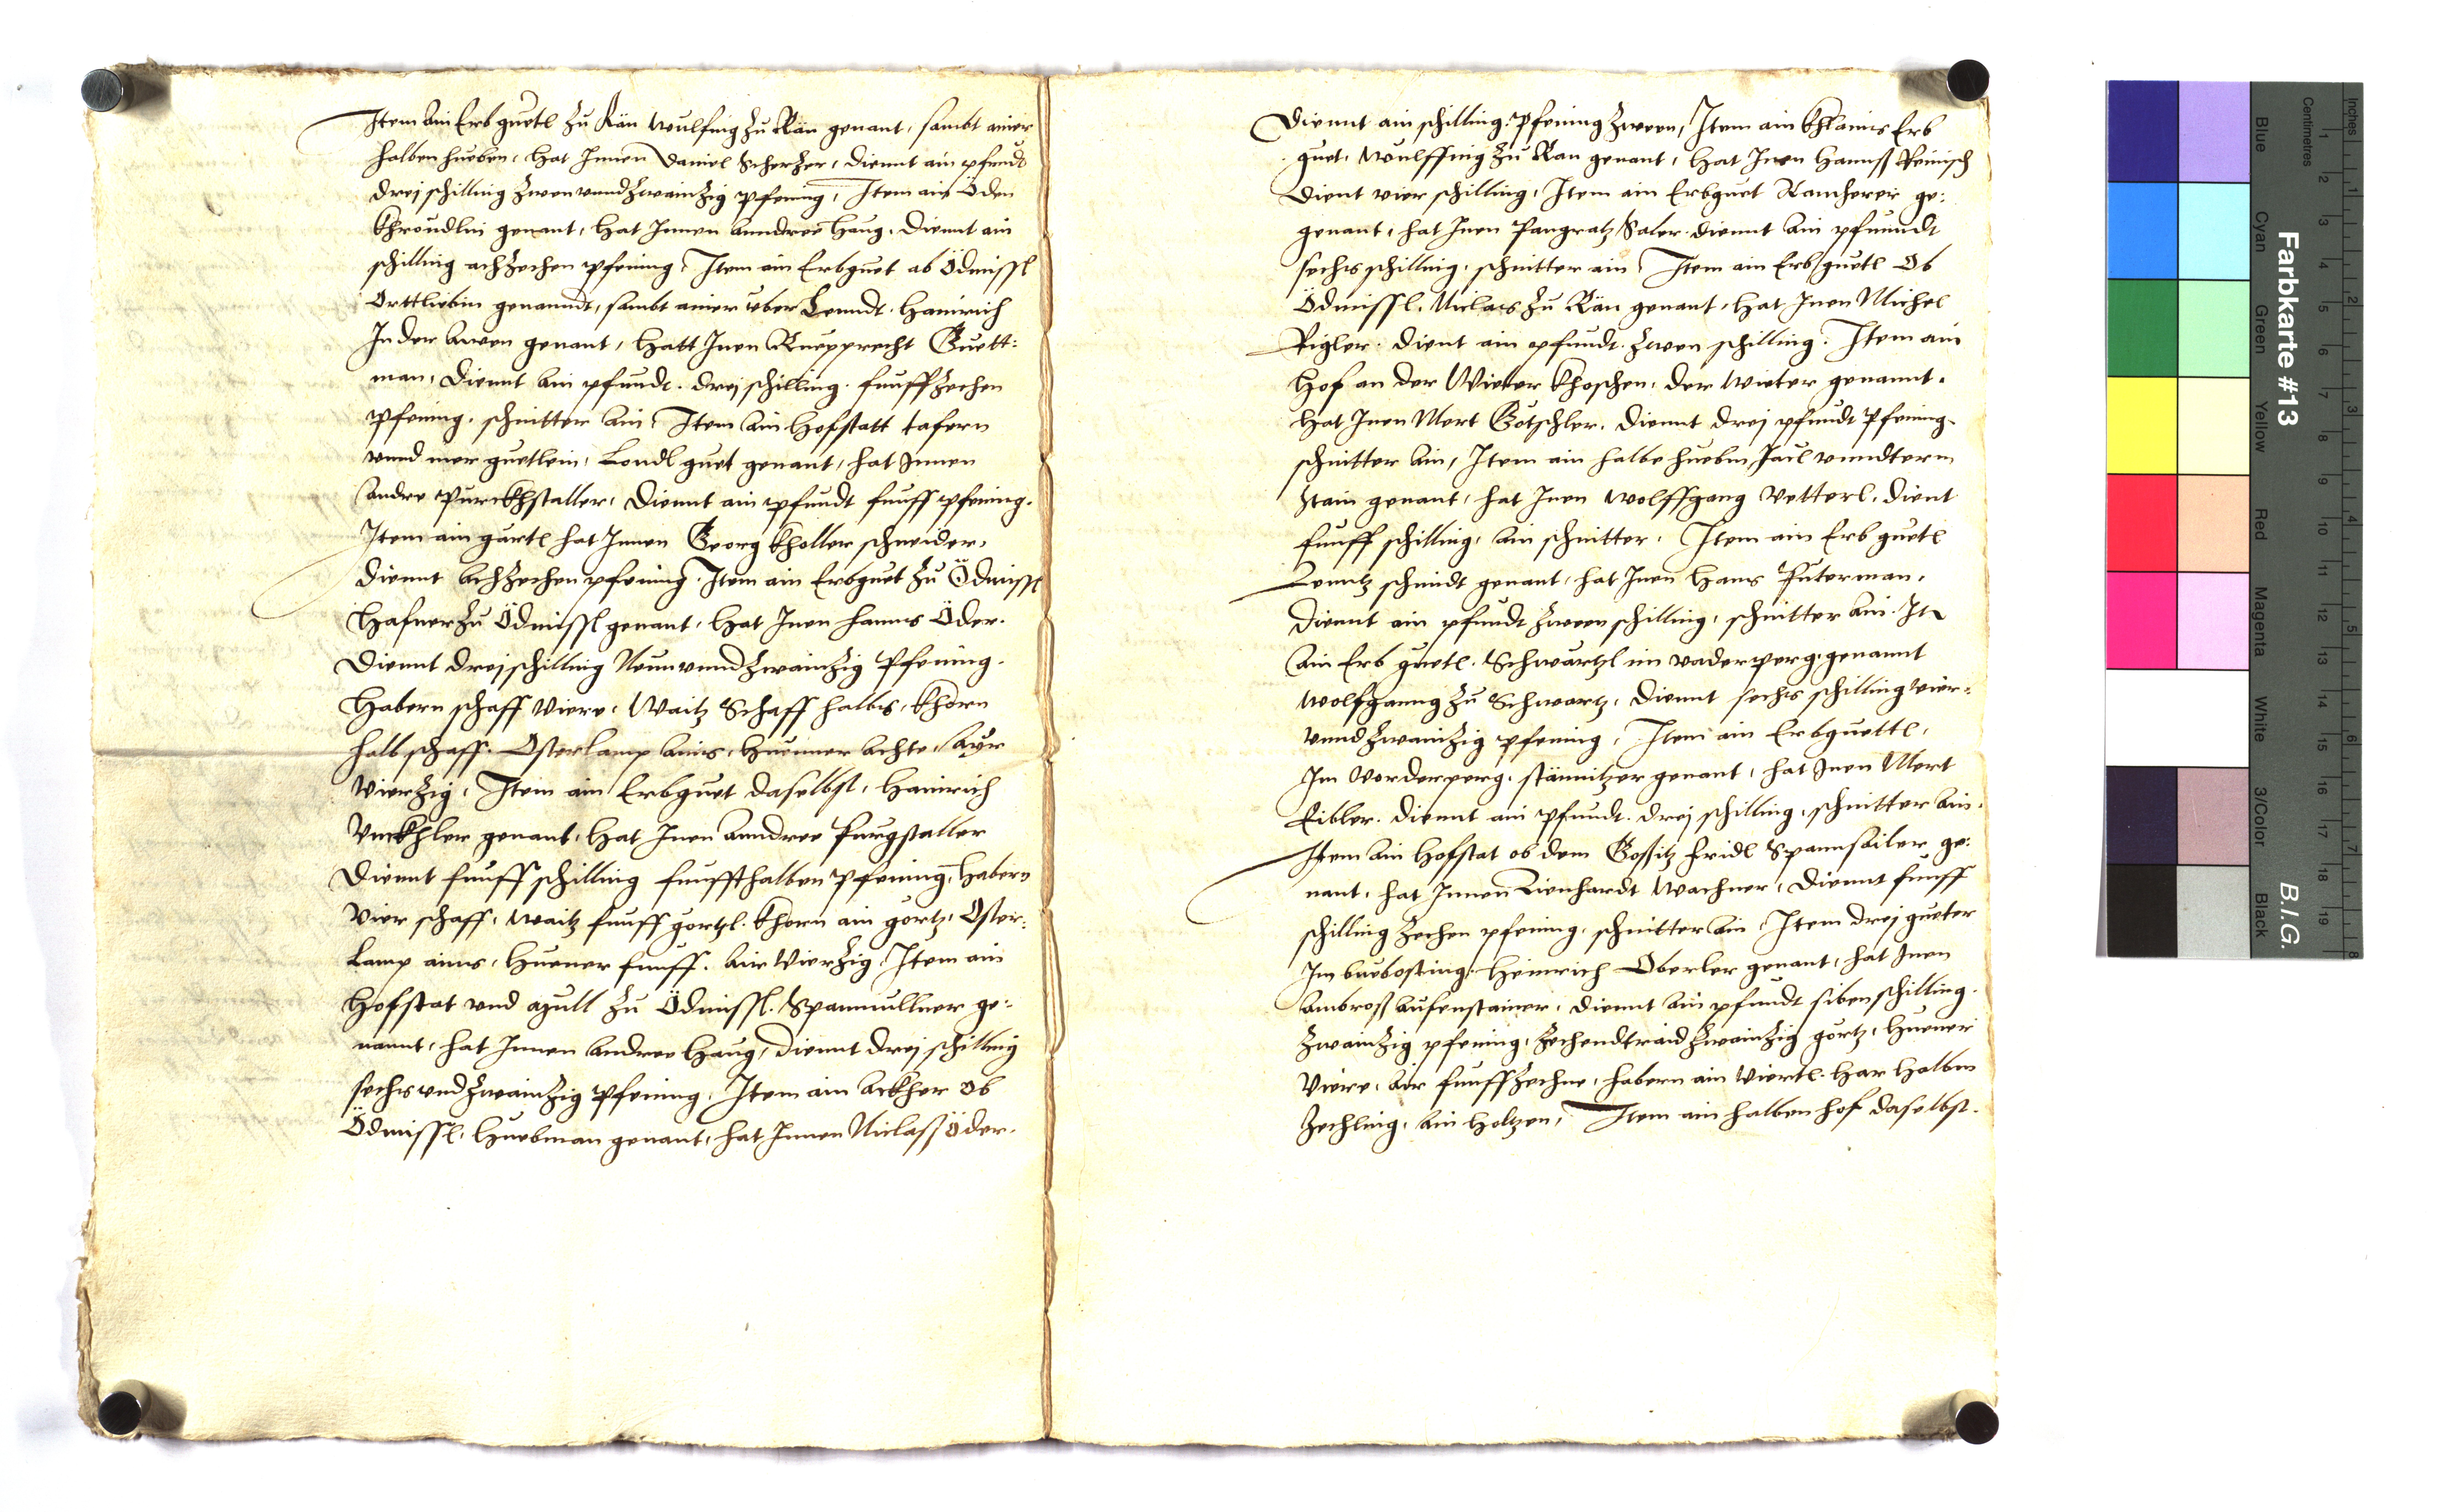 Item ain Erbguetl zu Rän Wulfing zu Rän genant, sambt ainer
halben hueben, hat Innen Daniel Scherzer, diennt ain pfundt
drej schilling zwenvnndzwainzig pfening, Item ain Öden
khröudlin genant, hat Innen anndree Haug, diennt ain
schilling achzechen pfening, Item ain Erbguet ab Ödmissl
Orttliebin genanndt, sambt ainer über Lenndt Hainrich
In der Awen genant, hatt Inen Ruepprecht Guett:
man, diennt ain pfundt drej schilling funffzechen
pfening, schnitter ain, Item ain Hofstatt tafern
vnnd mer guetlein, Lendl guet genant, hat Innen
Andre Purckhstaller, diennt ain pfundt funff pfening.
Item ain gärtl hat Innen Georg Kholler schneider,
diennt achzechen pfening. Item ain Erbguet zu Ödmissl
Hafner zu Ödmissl genant, hat Inen hanns Öder.
Diennt drej schilling Neunvnndzwainzig Pfening.
Habern schaff viere, Waitz Schaff halbs, khorn
halb schaff. Osterlamp ains, huenner achte, Ayr
vierzig, Item ain Erbguet daselbst, Hainrich
genant, hat Inen anndree purgstaller
Diennt funff schilling funffthalben pfening, Habern
vier schaff, waitz funff görtzl. khorn ain görtz, Oster:
lamp ains, huener funff. Air vierzig. Item ain
Hofstat vnd azull zu Ödmissl. Spanmullner ge:
nannt, hat Innen Andree Haug, diennt drej schilling
sechsvndzwainzig pfening, Item ain Ackher Ob
Ödmissl, Huebman genant, hat Innen Niclaß Öder.
Diennt ain schilling: pfening zween, Item ain khlains Erb
guet, Wulffing zu Ran genant, hat Inen Hannß Reinisch
dient vier schilling, Item ain Erbguet Rancherer ge:
genant, hat Inen Pangratz Saler. diennt ain pfunndt
sechs schilling, schnitter ain, Item ain Erbguetl Ob
Ödmissl. Niclas zu Rän genant, hat Inen Michel
Rigler. dient ain pfundt zwen schilling. Item ain
Hof an der Wieter khoschen, der Wieter genannt.
hat Inen Mert Götschler. diennt drej pfundt pfening.
schnitter ain, Item ain halbe hueben Paul vnndterm
Stain genant, hat Inen Wolffgang Vetterl, dient
funff schilling, ain schnitter. Item ain Erb guetl
Lenntz schmidt genant, hat Inen Hans Puterman,
diennt ain pfundt zween schilling, schnitter ain. It
ain Erb guetl. Schwartzl im vaderperg, genannt
Wolfganng zu Schwartz, diennt sechs schilling vier:
vnndzwainzig pfening, Item ain Erbguettl,
Im Vorderperg, stännitzer genant, hat Inen Mert
Eibler. diennt ain pfundt. drej schilling, schnitter ain.
Item ain hofstat ob dem Gossitz fridl Spannsailer ge:
nant, hat Innen Lienhardt Wachner, Diennt funff
schilling zechen pfening, schnitter ain Item drej gueter
Im Heinrich Oberler genant, hat Inen
Ambroß Aufenstainer, diennt ain pfundt siben schilling.
zwainzig pfening, zechendtraid zwainzig görtz, huener
viere, Air funffzechne, habern ain viertl. Har halben
zechling, ain Holtzen, Item ain halben hof daselbst.
Farbkarte #13
B.I.G.
Inches
Centimetres
Blue
Cyan
Green
Yellow
Red
Magenta
White
3/Color
Black
1 2 3 4 5 6 7 8 9 10 11 12 13 14 15 16 17 18 19
1 2 3 4 5 6 7 8